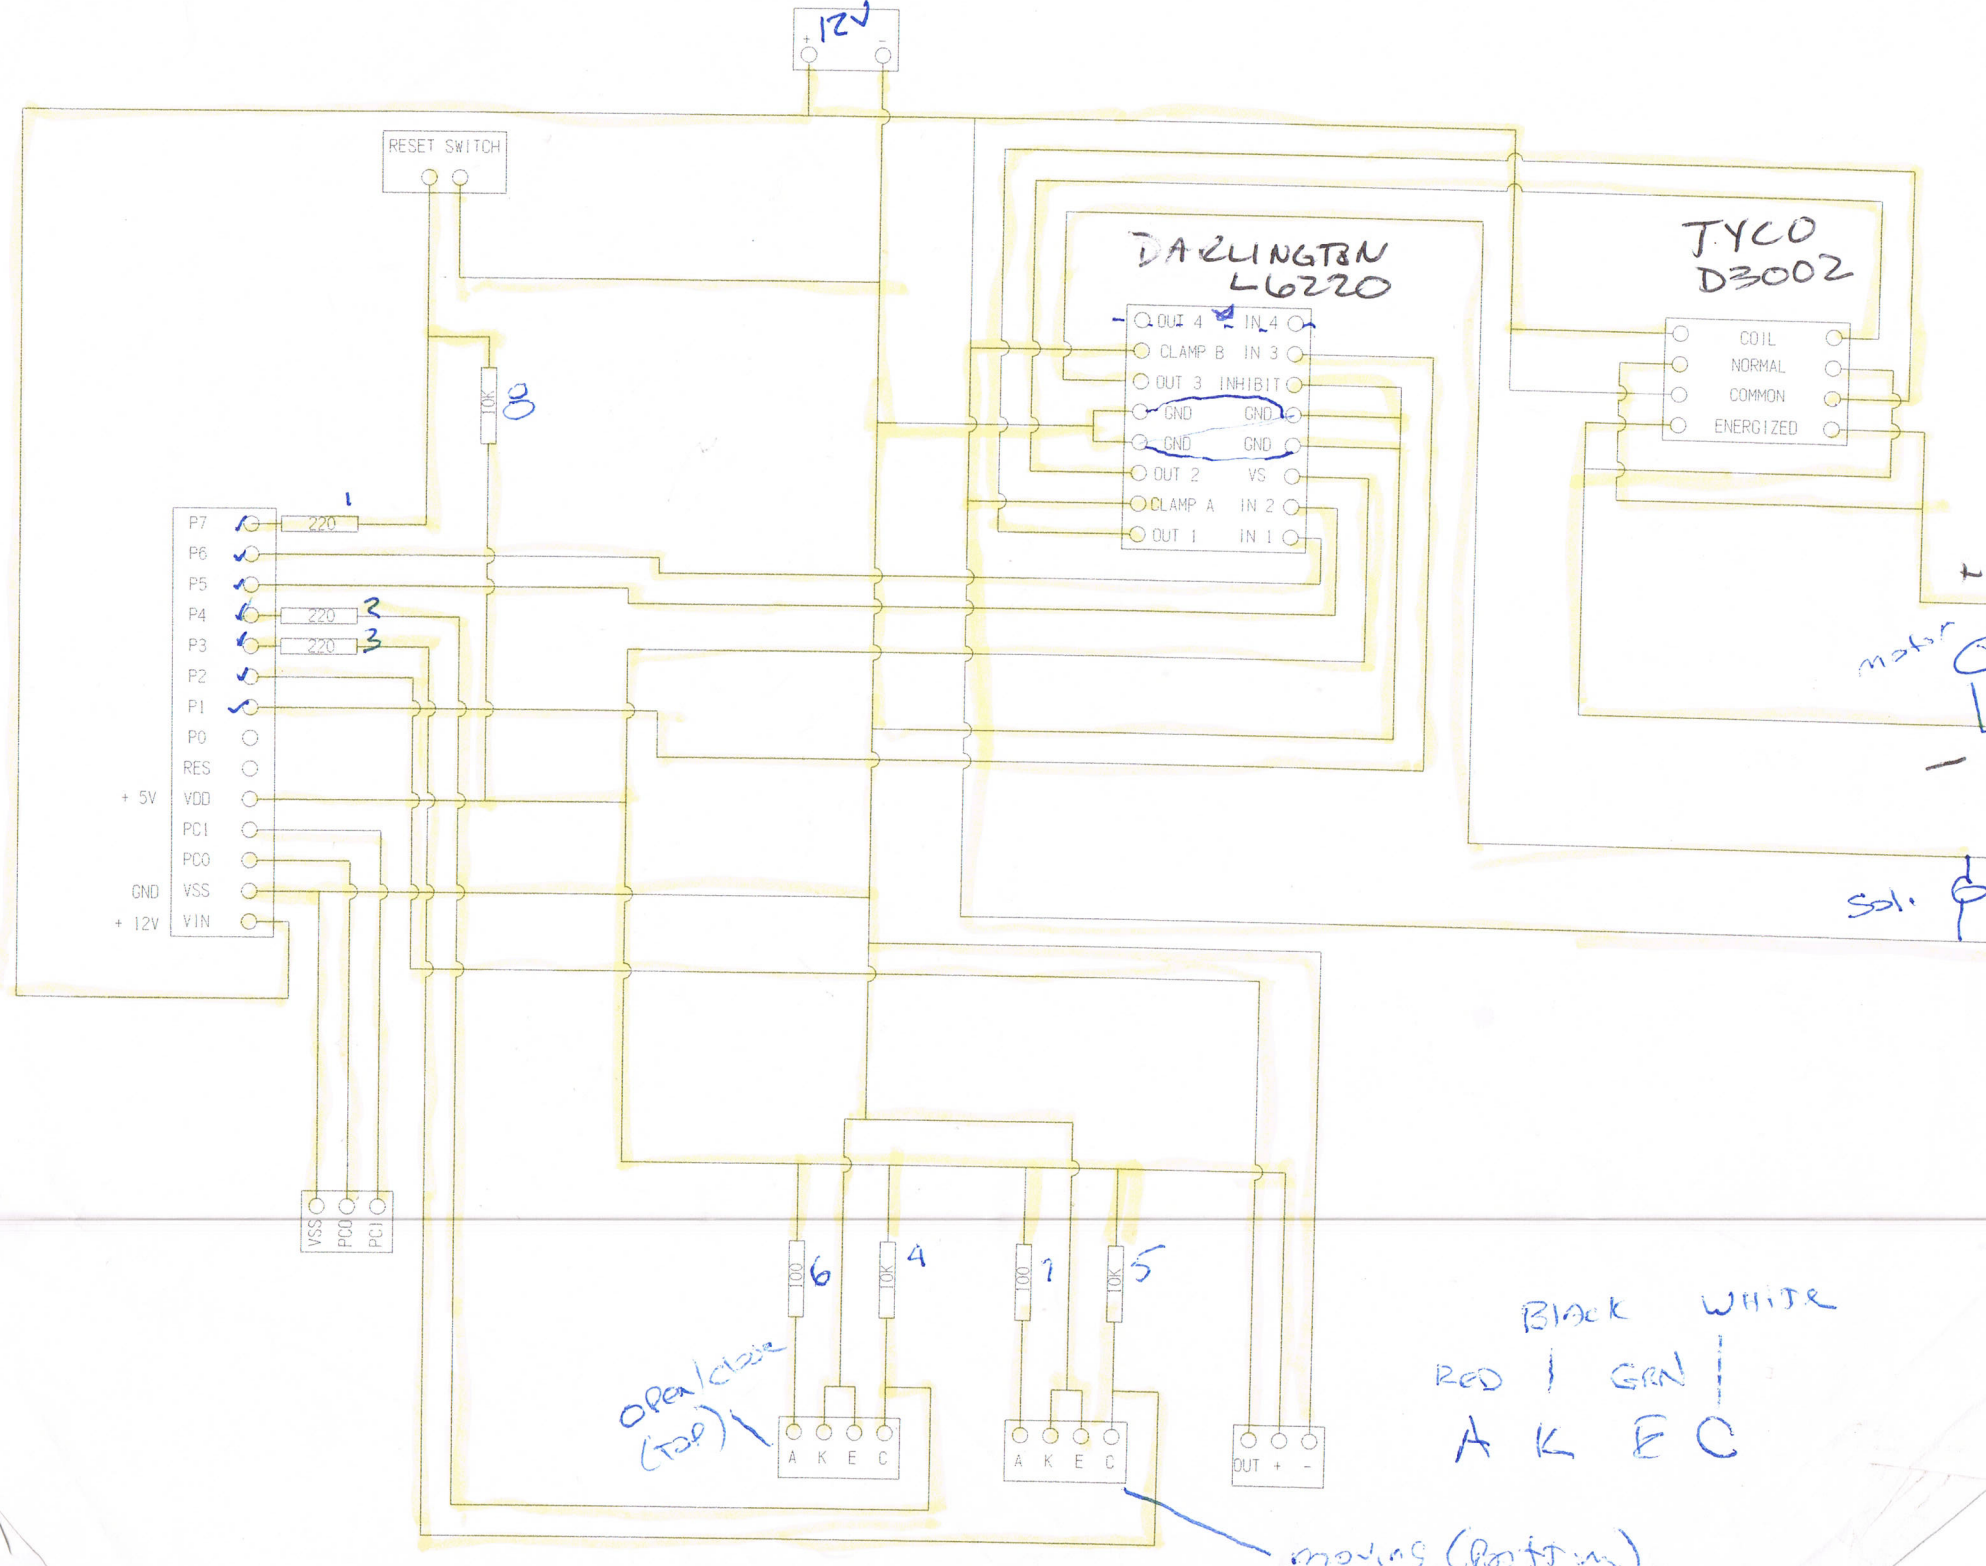 12V
+ -
RESET SWITCH
DARLINGTON
L6220
TYCO
D3002
OUT 4 IN 4
CLAMP B IN 3
OUT 3 INHIBIT
GND GND
GND GND
OUT 2 VS
CLAMP A IN 2
OUT 1 IN 1
COIL
NORMAL
COMMON
ENERGIZED
10K 8
1
P7 220
P6
P5
P4 220 2
P3 220 3
P2
P1
P0
RES
+ 5V VDD
PC1
PC0
GND VSS
+ 12V VIN
+
motor
-
Sol.
VSS
PC0
PC1
100 6
10K 4
100 7
10K 5
open/close
(TOP)
A K E C
A K E C
OUT + -
Black WHITE
RED GRN
A K E C
moving (Bottom)